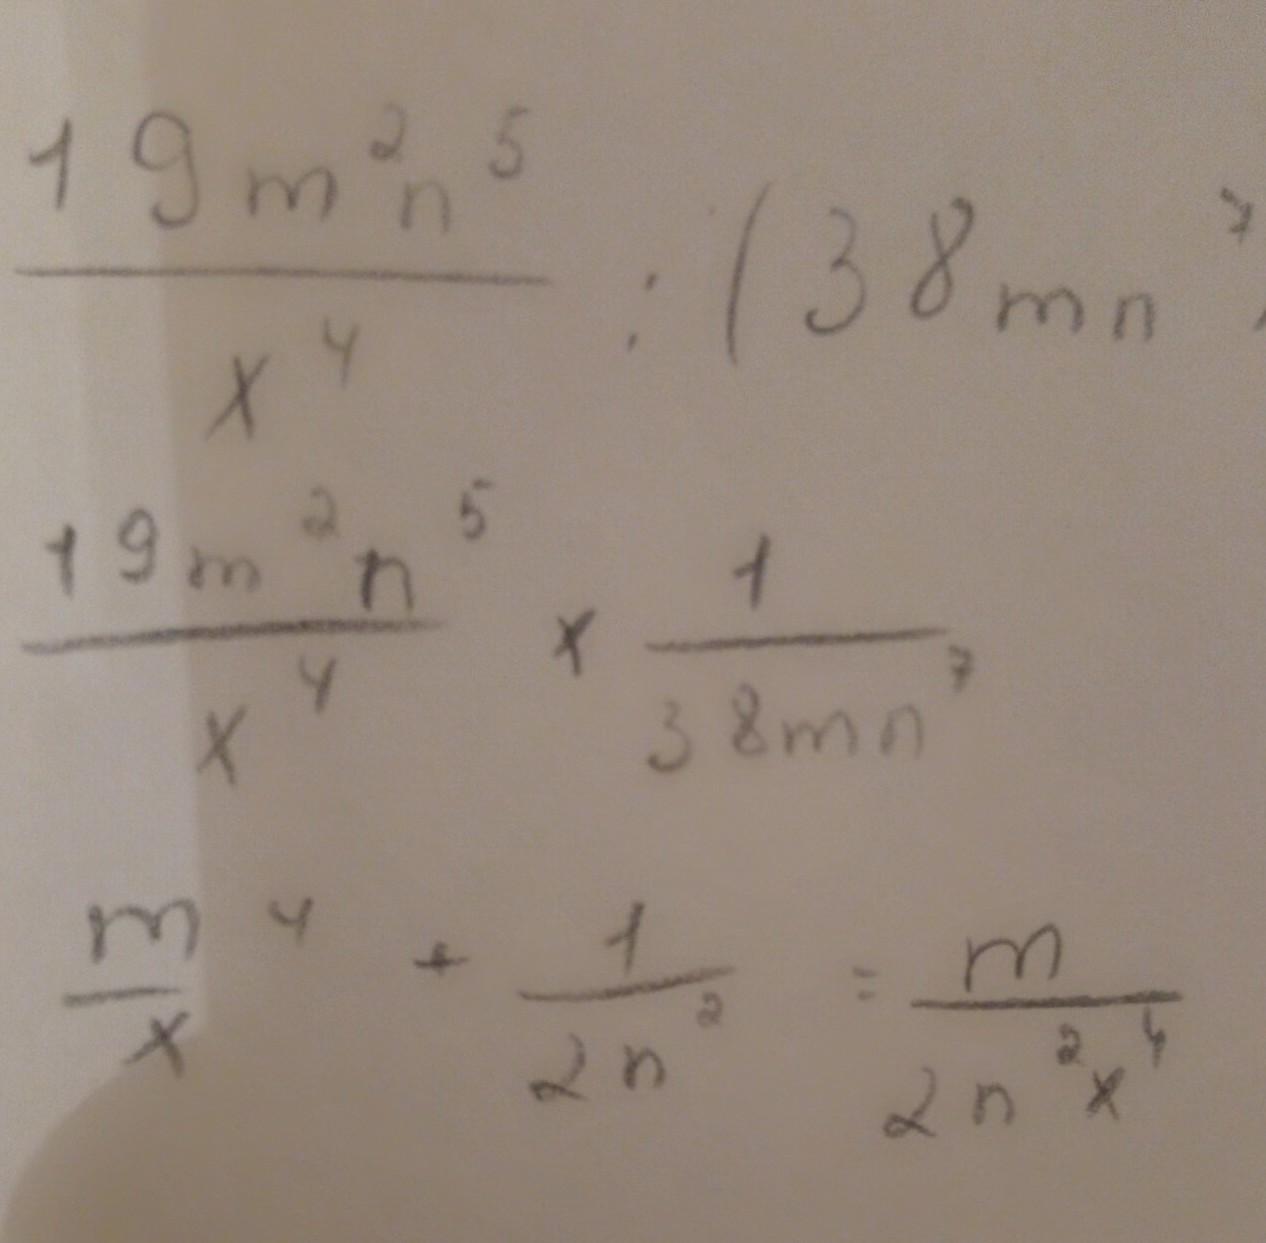 19m²n⁵/x⁴ : (38mn⁷)
19m²n⁵/x⁴ × 1/38mn⁷
m⁴/x + 1/2n² = m/2n²x⁴